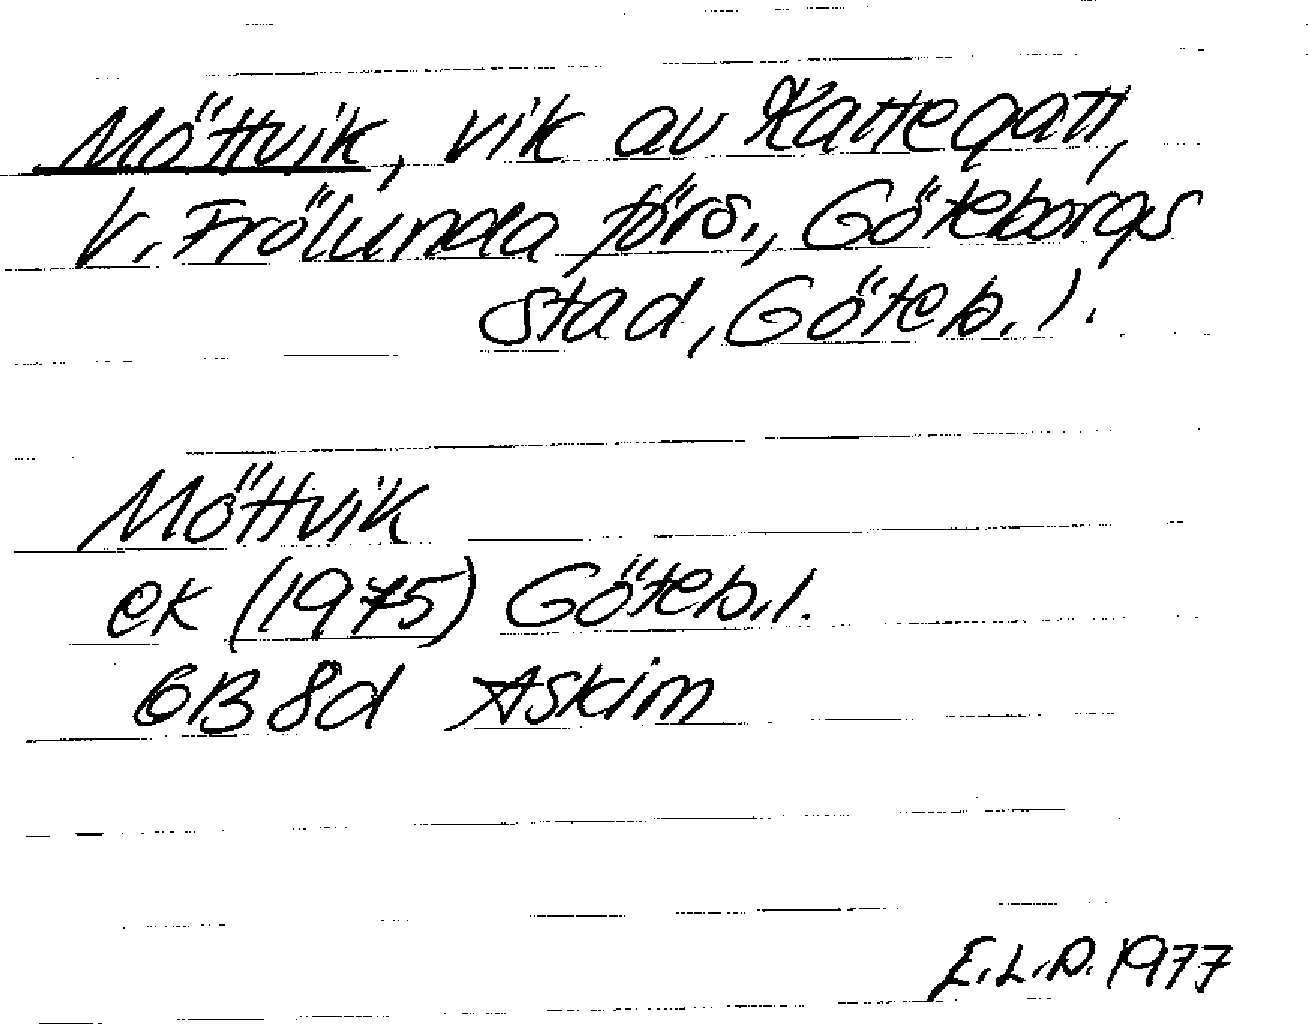 Möttvik, vik av Kattegatt,
V. Frölunda förs., Göteborgs
stad, Göteb. l.
Möttvik
ek (1975) Göteb. l.
6B 8d Askim
E.L.D. 1977